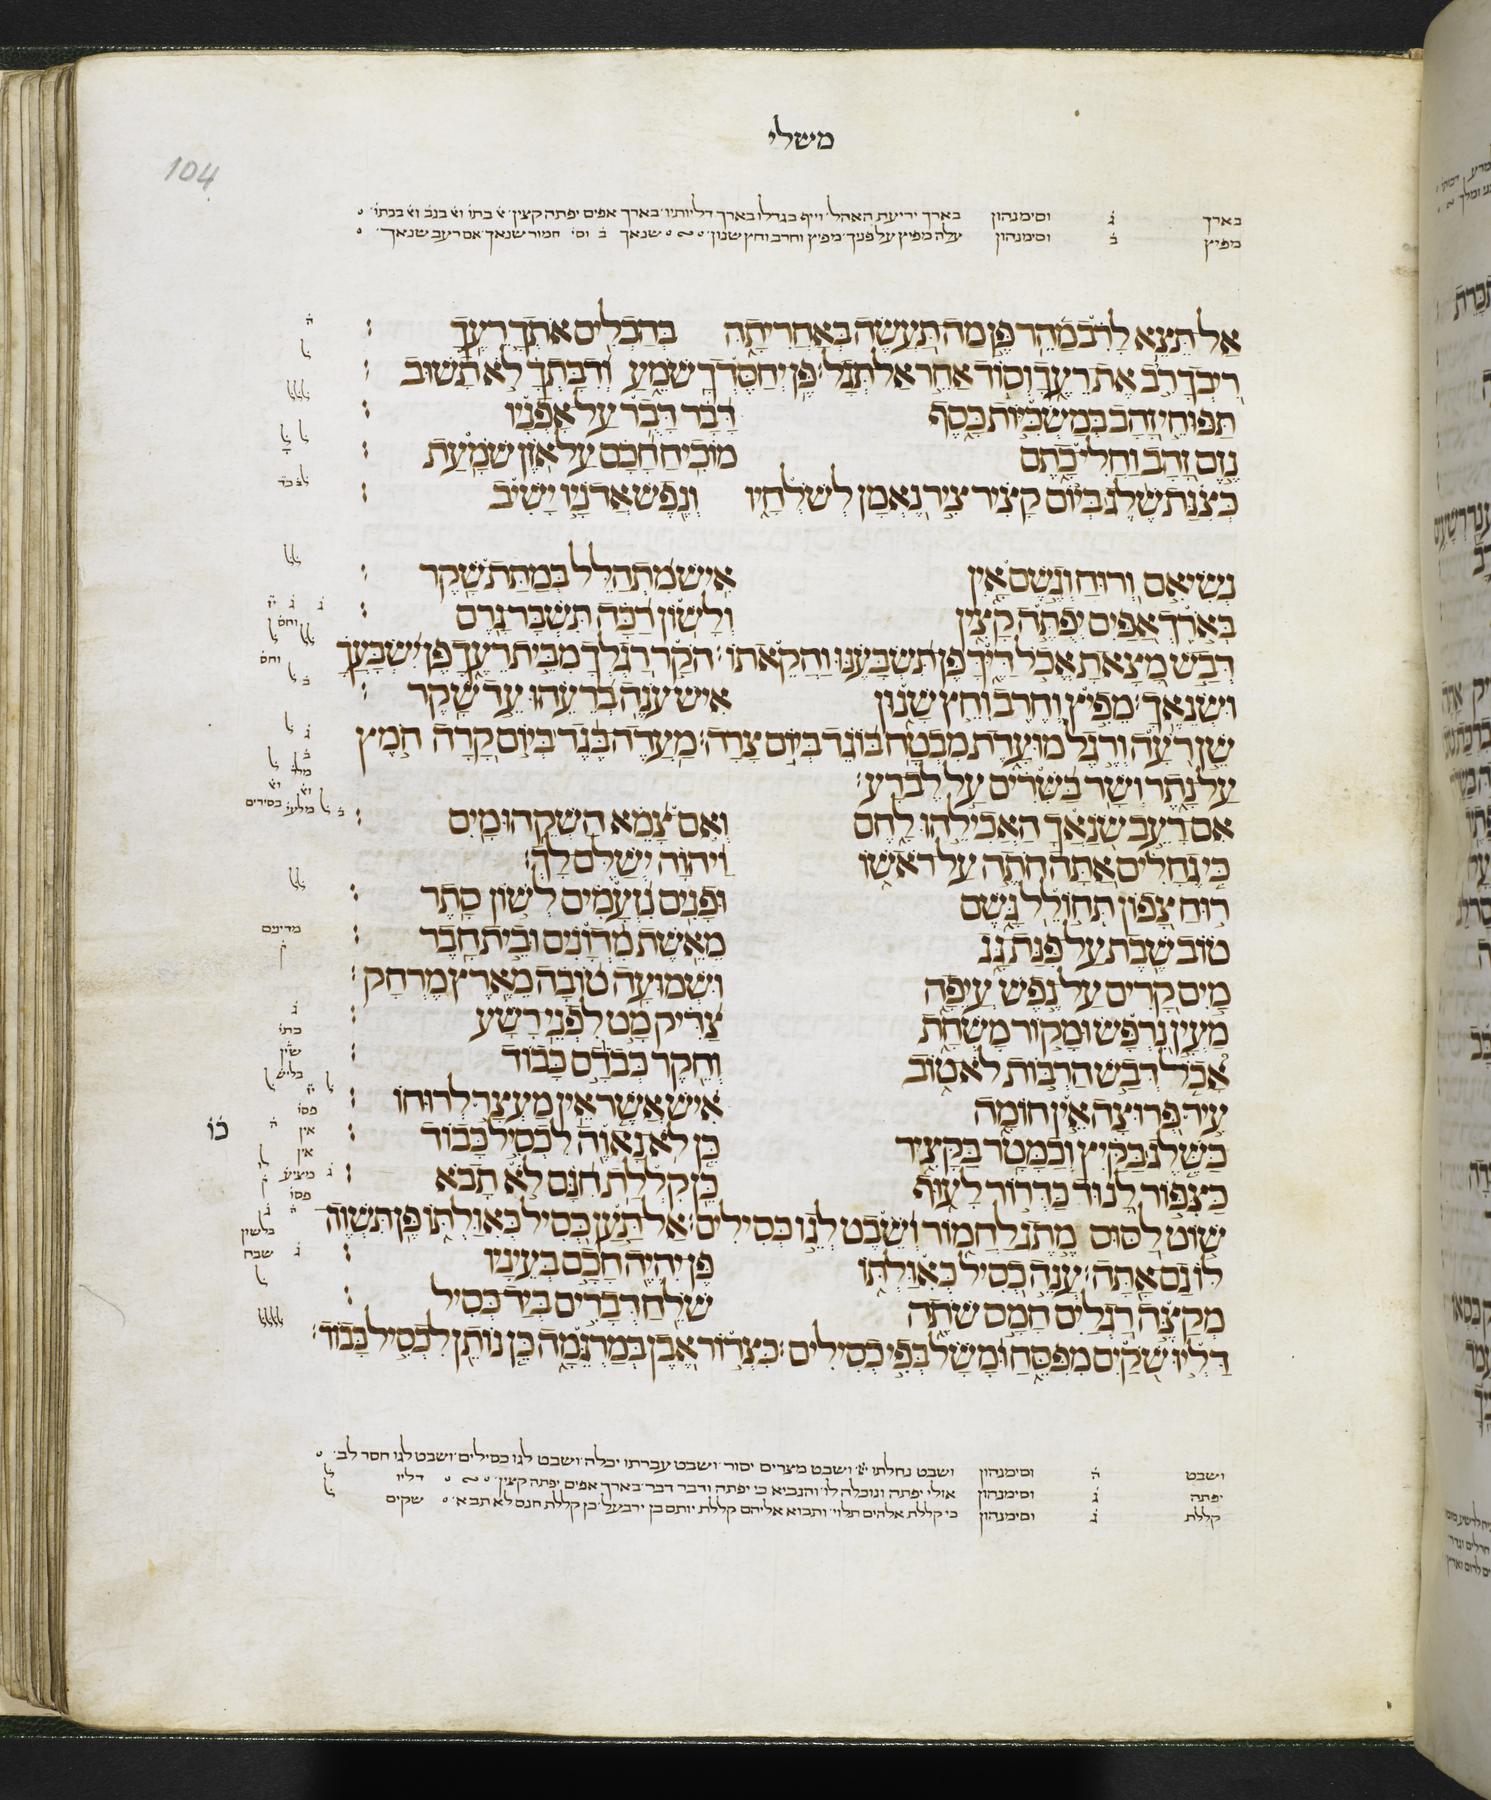 משלי
104
בארך ג̇ וסימנהון בארך יריעת האהל וייף בגדלו בארך דליותיו בארך אפים יפתה קצין
מפיץ ב̇ וסימנהון עלה מפיץ על פניך מפיץ וחרב וחץ שנון שנאך ב̇ וסי̇ חמור שנאך אם רעב שנאך
אַל תֵּצֵא לָרִב מַהֵר פֶּן מַה תַּעֲשֶׂה בְּאַחֲרִיתָהּ בְּהַכְלִים אֹתְךָ רֵעֶךָ׃
רִיבְךָ רִיב אֶת רֵעֶךָ וְסוֹד אַחֵר אַל תְּגָל׃ פֶּן יְחַסֶּדְךָ שֹׁמֵעַ וְדִבָּתְךָ לֹא תָשׁוּב׃
תַּפּוּחֵי זָהָב בְּמַשְׂכִּיּוֹת כָּסֶף דָּבָר דָּבֻר עַל אָפְנָיו׃
נֶזֶם זָהָב וַחֲלִי כָתֶם מוֹכִיחַ חָכָם עַל אֹזֶן שֹׁמָעַת׃
כְּצִנַּת שֶׁלֶג בְּיוֹם קָצִיר צִיר נֶאֱמָן לְשֹׁלְחָיו וְנֶפֶשׁ אֲדֹנָיו יָשִׁיב׃
נְשִׂיאִם וְרוּחַ וְגֶשֶׁם אָיִן אִישׁ מִתְהַלֵּל בְּמַתַּת שָׁקֶר׃
בְּאֹרֶךְ אַפַּיִם יְפֻתֶּה קָצִין וְלָשׁוֹן רַכָּה תִּשְׁבָּר גָּרֶם׃
דְּבַשׁ מָצָאתָ אֱכֹל דַּיֶּךָּ פֶּן תִּשְׂבָּעֶנּוּ וַהֲקֵאתוֹ׃ הֹקַר רַגְלְךָ מִבֵּית רֵעֶךָ פֶּן יִשְׂבָּעֲךָ
וּשְׂנֵאֶךָ׃ מֵפִיץ וְחֶרֶב וְחֵץ שָׁנוּן אִישׁ עֹנֶה בְרֵעֵהוּ עֵד שָׁקֶר׃
שֵׁן רֹעָה וְרֶגֶל מוּעָדֶת מִבְטָח בּוֹגֵד בְּיוֹם צָרָה׃ מַעֲדֶה בֶּגֶד בְּיוֹם קָרָה חֹמֶץ
עַל נָתֶר וְשָׁר בַּשִּׁרִים עַל לֶב רָע׃
אִם רָעֵב שֹׂנַאֲךָ הַאֲכִילֵהוּ לָחֶם וְאִם צָמֵא הַשְׁקֵהוּ מָיִם׃
כִּי גֶחָלִים אַתָּה חֹתֶה עַל רֹאשׁוֹ וַיהוָה יְשַׁלֶּם לָךְ׃
רוּחַ צָפוֹן תְּחוֹלֵל גָּשֶׁם וּפָנִים נִזְעָמִים לְשׁוֹן סָתֶר׃
טוֹב שֶׁבֶת עַל פִּנַּת גָּג מֵאֵשֶׁת מִדְוָנִים וּבֵית חָבֶר׃
מַיִם קָרִים עַל נֶפֶשׁ עֲיֵפָה וּשְׁמוּעָה טוֹבָה מֵאֶרֶץ מֶרְחָק׃
מַעְיָן נִרְפָּשׂ וּמָקוֹר מָשְׁחָת צַדִּיק מָט לִפְנֵי רָשָׁע׃
אָכֹל דְּבַשׁ הַרְבּוֹת לֹא טוֹב וְחֵקֶר כְּבֹדָם כָּבוֹד׃
עִיר פְּרוּצָה אֵין חוֹמָה אִישׁ אֲשֶׁר אֵין מַעְצָר לְרוּחוֹ׃
כַּשֶּׁלֶג בַּקַּיִץ וְכַמָּטָר בַּקָּצִיר כֵּן לֹא נָאוֶה לִכְסִיל כָּבוֹד׃ כו
כַּצִּפּוֹר לָנוּד כַּדְּרוֹר לָעוּף כֵּן קִלְלַת חִנָּם לֹא תָבֹא׃
שׁוֹט לַסּוּס מֶתֶג לַחֲמוֹר וְשֵׁבֶט לְגֵו כְּסִילִים׃ אַל תַּעַן כְּסִיל כְּאִוַּלְתּוֹ פֶּן תִּשְׁוֶה
לּוֹ גַם אָתָּה׃ עֲנֵה כְסִיל כְּאִוַּלְתּוֹ פֶּן יִהְיֶה חָכָם בְּעֵינָיו׃
מְקַצֶּה רַגְלַיִם חָמָס שֹׁתֶה שֹׁלֵחַ דְּבָרִים בְּיַד כְּסִיל׃
דַּלְיוּ שֹׁקַיִם מִפִּסֵּחַ וּמָשָׁל בְּפִי כְסִילִים׃ כִּצְרוֹר אֶבֶן בְּמַרְגֵּמָה כֵּן נוֹתֵן לִכְסִיל כָּבוֹד׃
ושבט ה̇ וסימנהון ושבט נחלתו ושבט מצרים יסור ושבט עברתו יכלה ושבט לגו כסילים ושבט לגו חסר לב
יפתה ג̇ וסימנהון אולי יפתה ונוכלה לו והנביא כי יפתה ודבר דבר בארך אפים יפתה קצין דליו ל̇
קללת ג̇ וסימנהון כי קללת אלהים תלוי ותבוא אליהם קללת יותם בן ירבעל כן קללת חנם לא תבא שקים ל̇